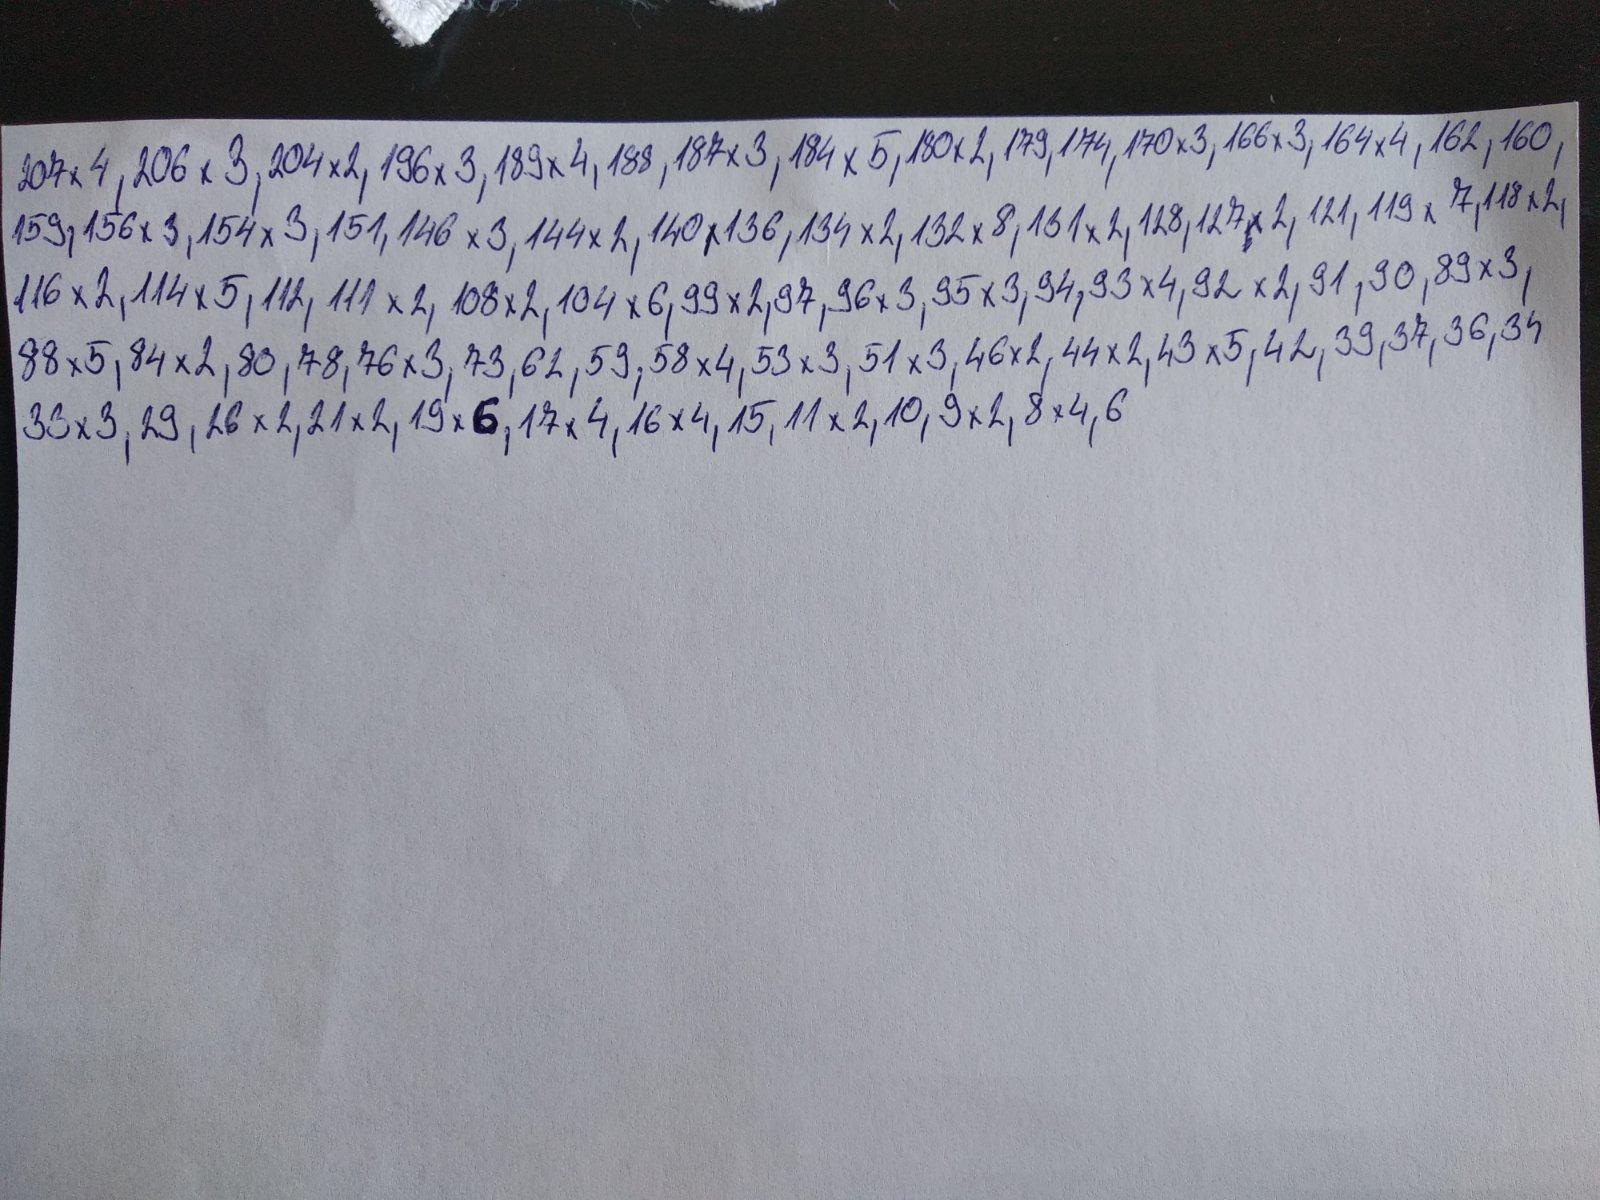 207x4, 206 x 3, 204x2, 196x3, 189x4, 188, 187x3, 184 x 5, 180x2, 179, 174, 170x3, 166x3, 164x4, 162, 160,
159, 156x3, 154x3, 151, 146 x3, 144x2, 140, 136, 134 x2, 132x8, 131x2, 128, 127x2, 121, 119x 7, 118x2,
116x2, 114x5, 112, 111 x2, 108x2, 104x6, 99x2, 97, 96x3, 95x3, 94, 93x4, 92 x2, 91, 90, 89x3,
88x5, 84x2, 80, 78, 76x3, 73, 62, 59, 58x4, 53x3, 51x3, 46x2, 44x2, 43x5, 42, 39, 37, 36, 34
33x3, 29, 26x2, 21x2, 19x6, 17x4, 16x4, 15, 11x2, 10, 9x2, 8x4, 6